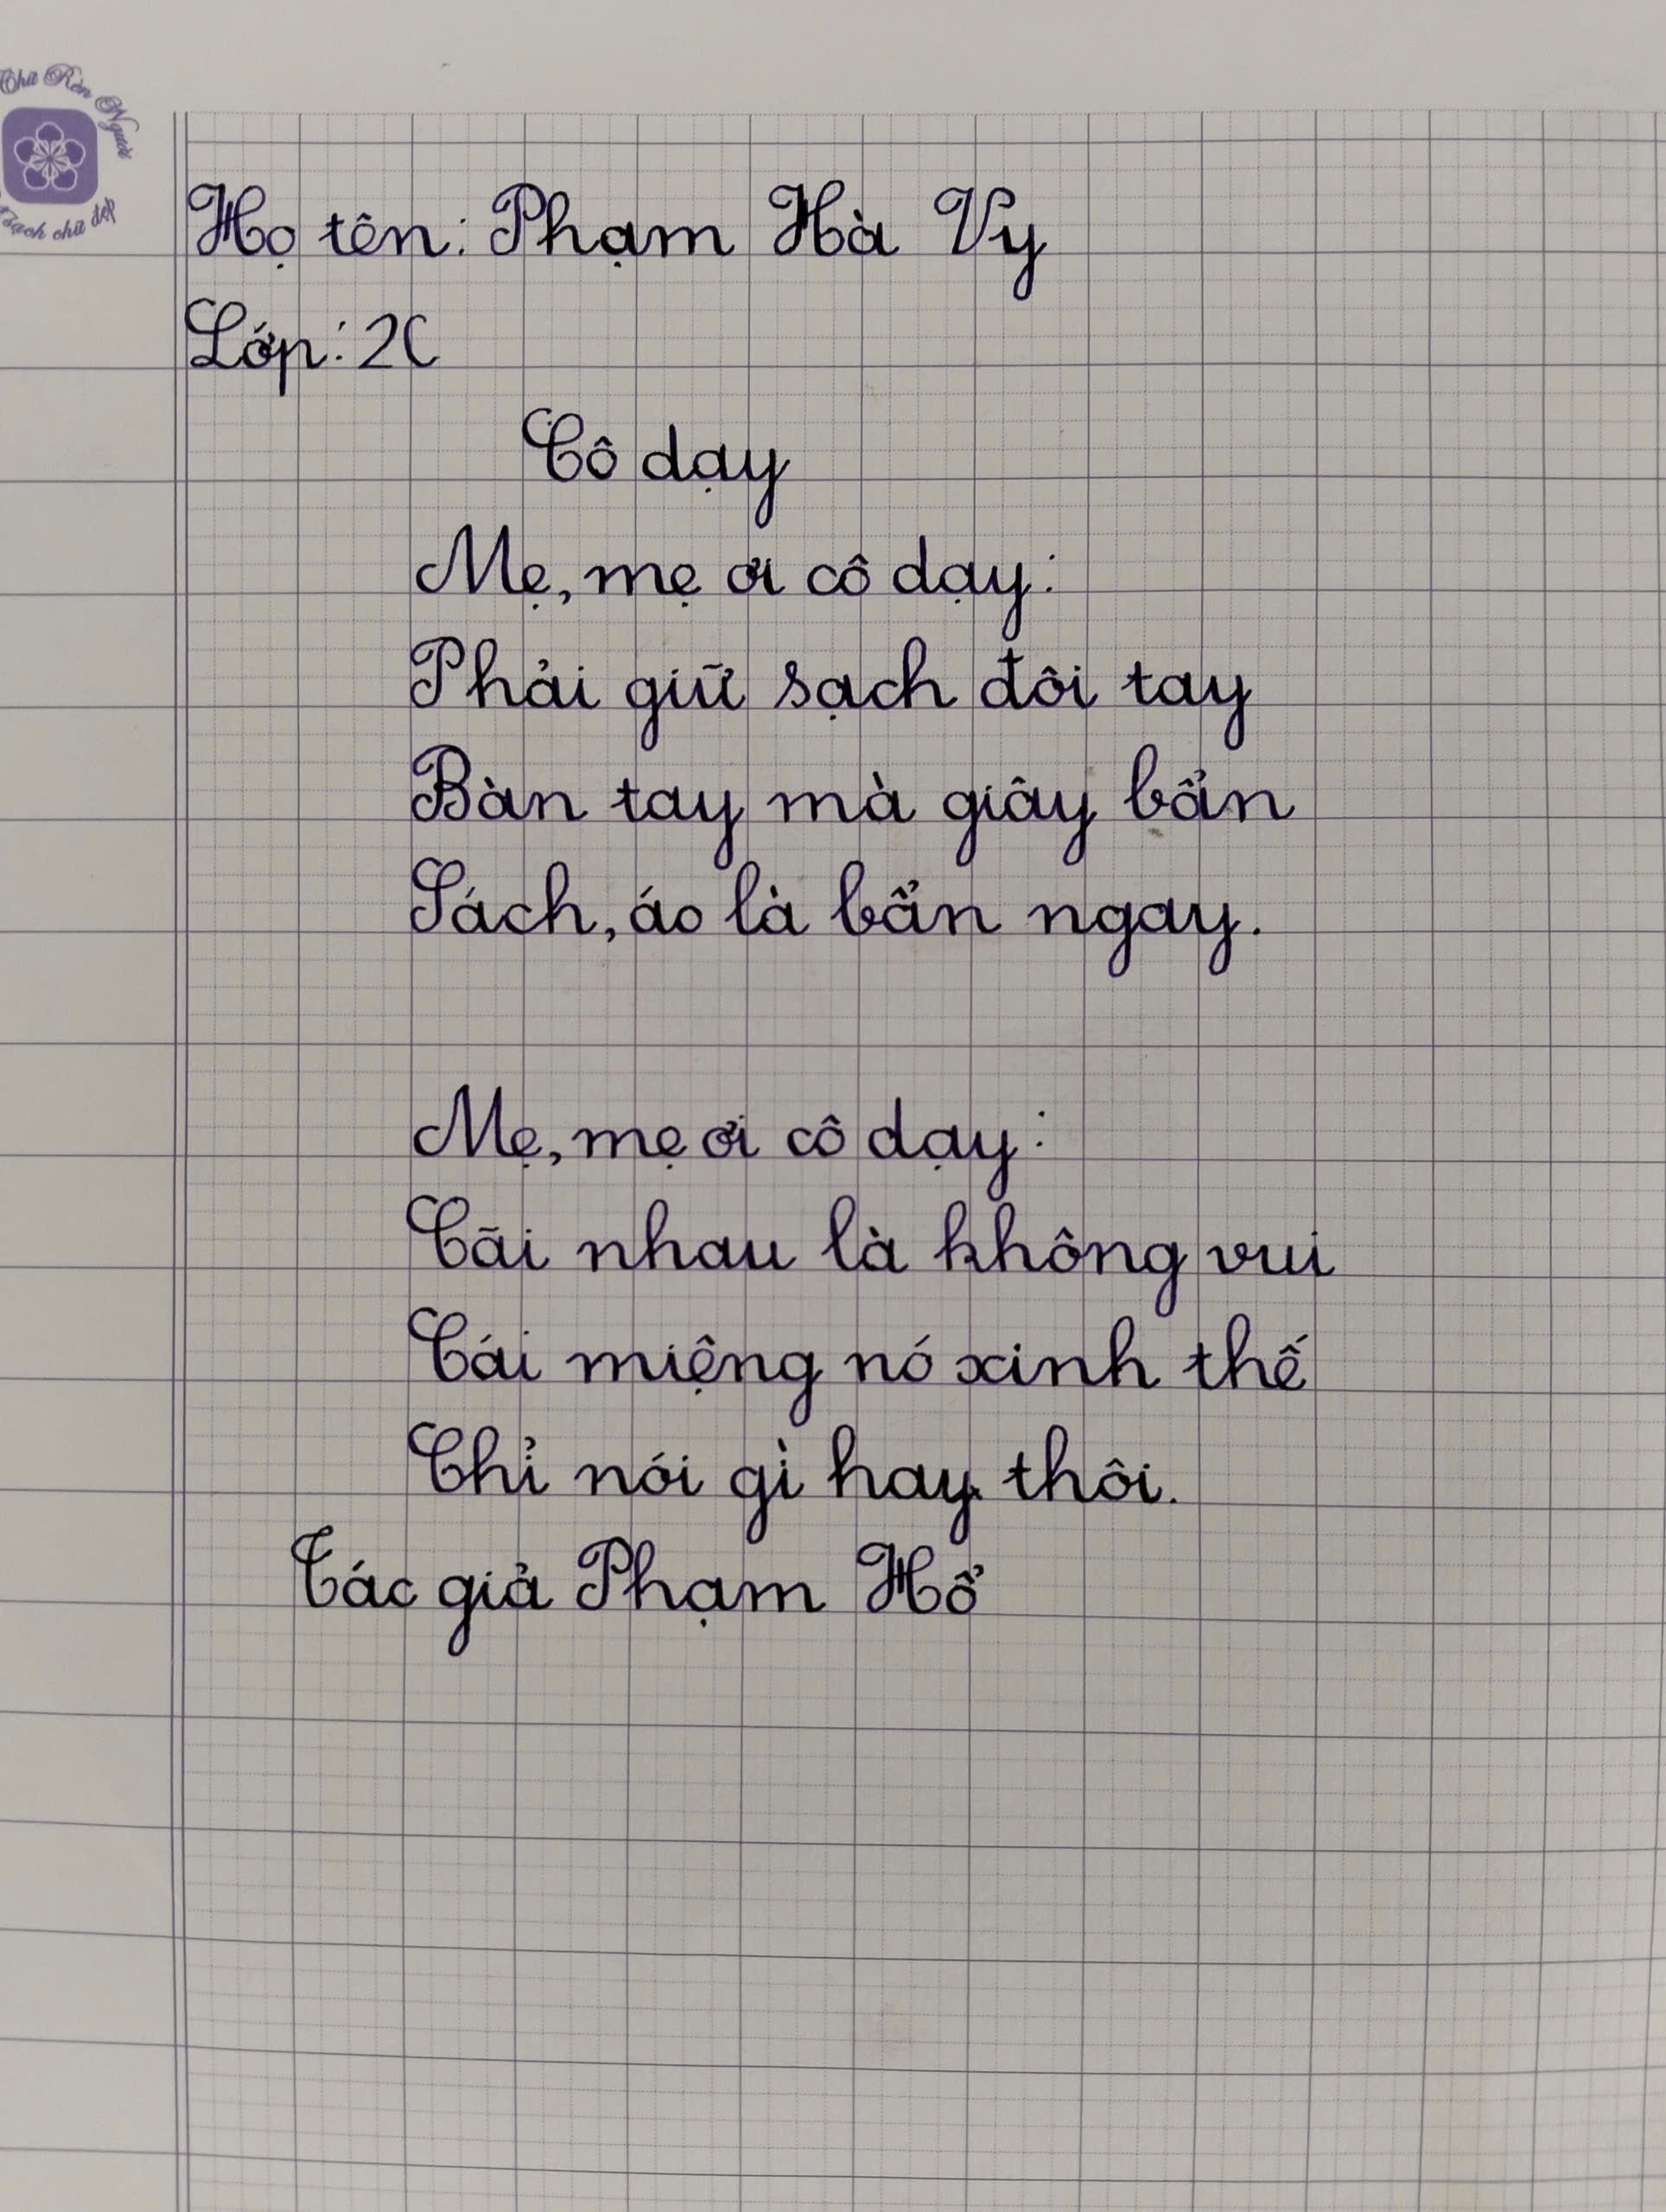 Chữ Rèn Người
sạch chữ đẹp
Họ tên: Phạm Hà Vy
Lớp: 2C
Cô dạy
Mẹ, mẹ ơi cô dạy:
Phải giữ sạch đôi tay
Bàn tay mà giây bẩn
Sách, áo là bẩn ngay.
Mẹ, mẹ ơi cô dạy:
Cãi nhau là không vui
Cái miệng nó xinh thế
Chỉ nói gì hay thôi.
Tác giả Phạm Hổ